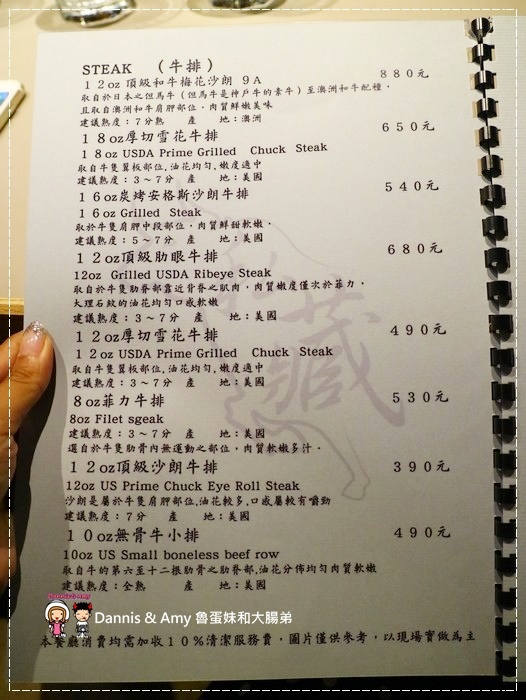 STEAK （牛排）
１２oz 頂級和牛梅花沙朗 ９Ａ ８８０元
取自於日本之但馬牛（但馬牛是神戶牛的素牛）至澳洲和牛配種，
且取自澳洲和牛肩胛部位，肉質鮮嫩美味
建議熟度：７分熟 產 地：澳洲
１８oz厚切雪花牛排 ６５０元
１８oz USDA Prime Grilled Chuck Steak
取自牛隻翼板部位，油花均勻，嫩度適中
建議熟度：３～７分 產 地：美國
１６oz炭烤安格斯沙朗牛排 ５４０元
１６oz Grilled Steak
取於牛隻肩胛中段部份，肉質鮮甜軟嫩。
建議熟度：５～７分 產 地：美國
１２oz頂級肋眼牛排 ６８０元
12oz Grilled USDA Ribeye Steak
取自於牛隻肋脊部靠近背脊之肌肉，肉質嫩度僅次於菲力，
大理石紋的油花均勻口感軟嫩
建議熟度：３～７分 產 地：美國
１２oz厚切雪花牛排 ４９０元
１２oz USDA Prime Grilled Chuck Steak
取自牛隻翼板部位，油花均勻，嫩度適中
建議熟度：３～７分 產 地：美國
8oz菲力牛排 ５３０元
8oz Filet sgeak
建議熟度：３～７分 產 地：美國
選自於牛隻肋骨內無運動之部位，肉質軟嫩多汁。
１２oz頂級沙朗牛排 ３９０元
12oz US Prime Chuck Eye Roll Steak
沙朗是屬於牛隻肩胛部位，油花較多，口感屬較有嚼勁
建議熟度：７分 產 地：美國
１０oz無骨牛小排 ４９０元
10oz US Small boneless beef row
取自牛的第六至十二根肋骨之肋脊部，油花分佈均勻肉質軟嫩
建議熟度：全熟 產 地：美國
Dannis & Amy 魯蛋妹和大腸弟
本餐廳消費均需加收１０％清潔服務費，圖片僅供參考，以現場實做為主